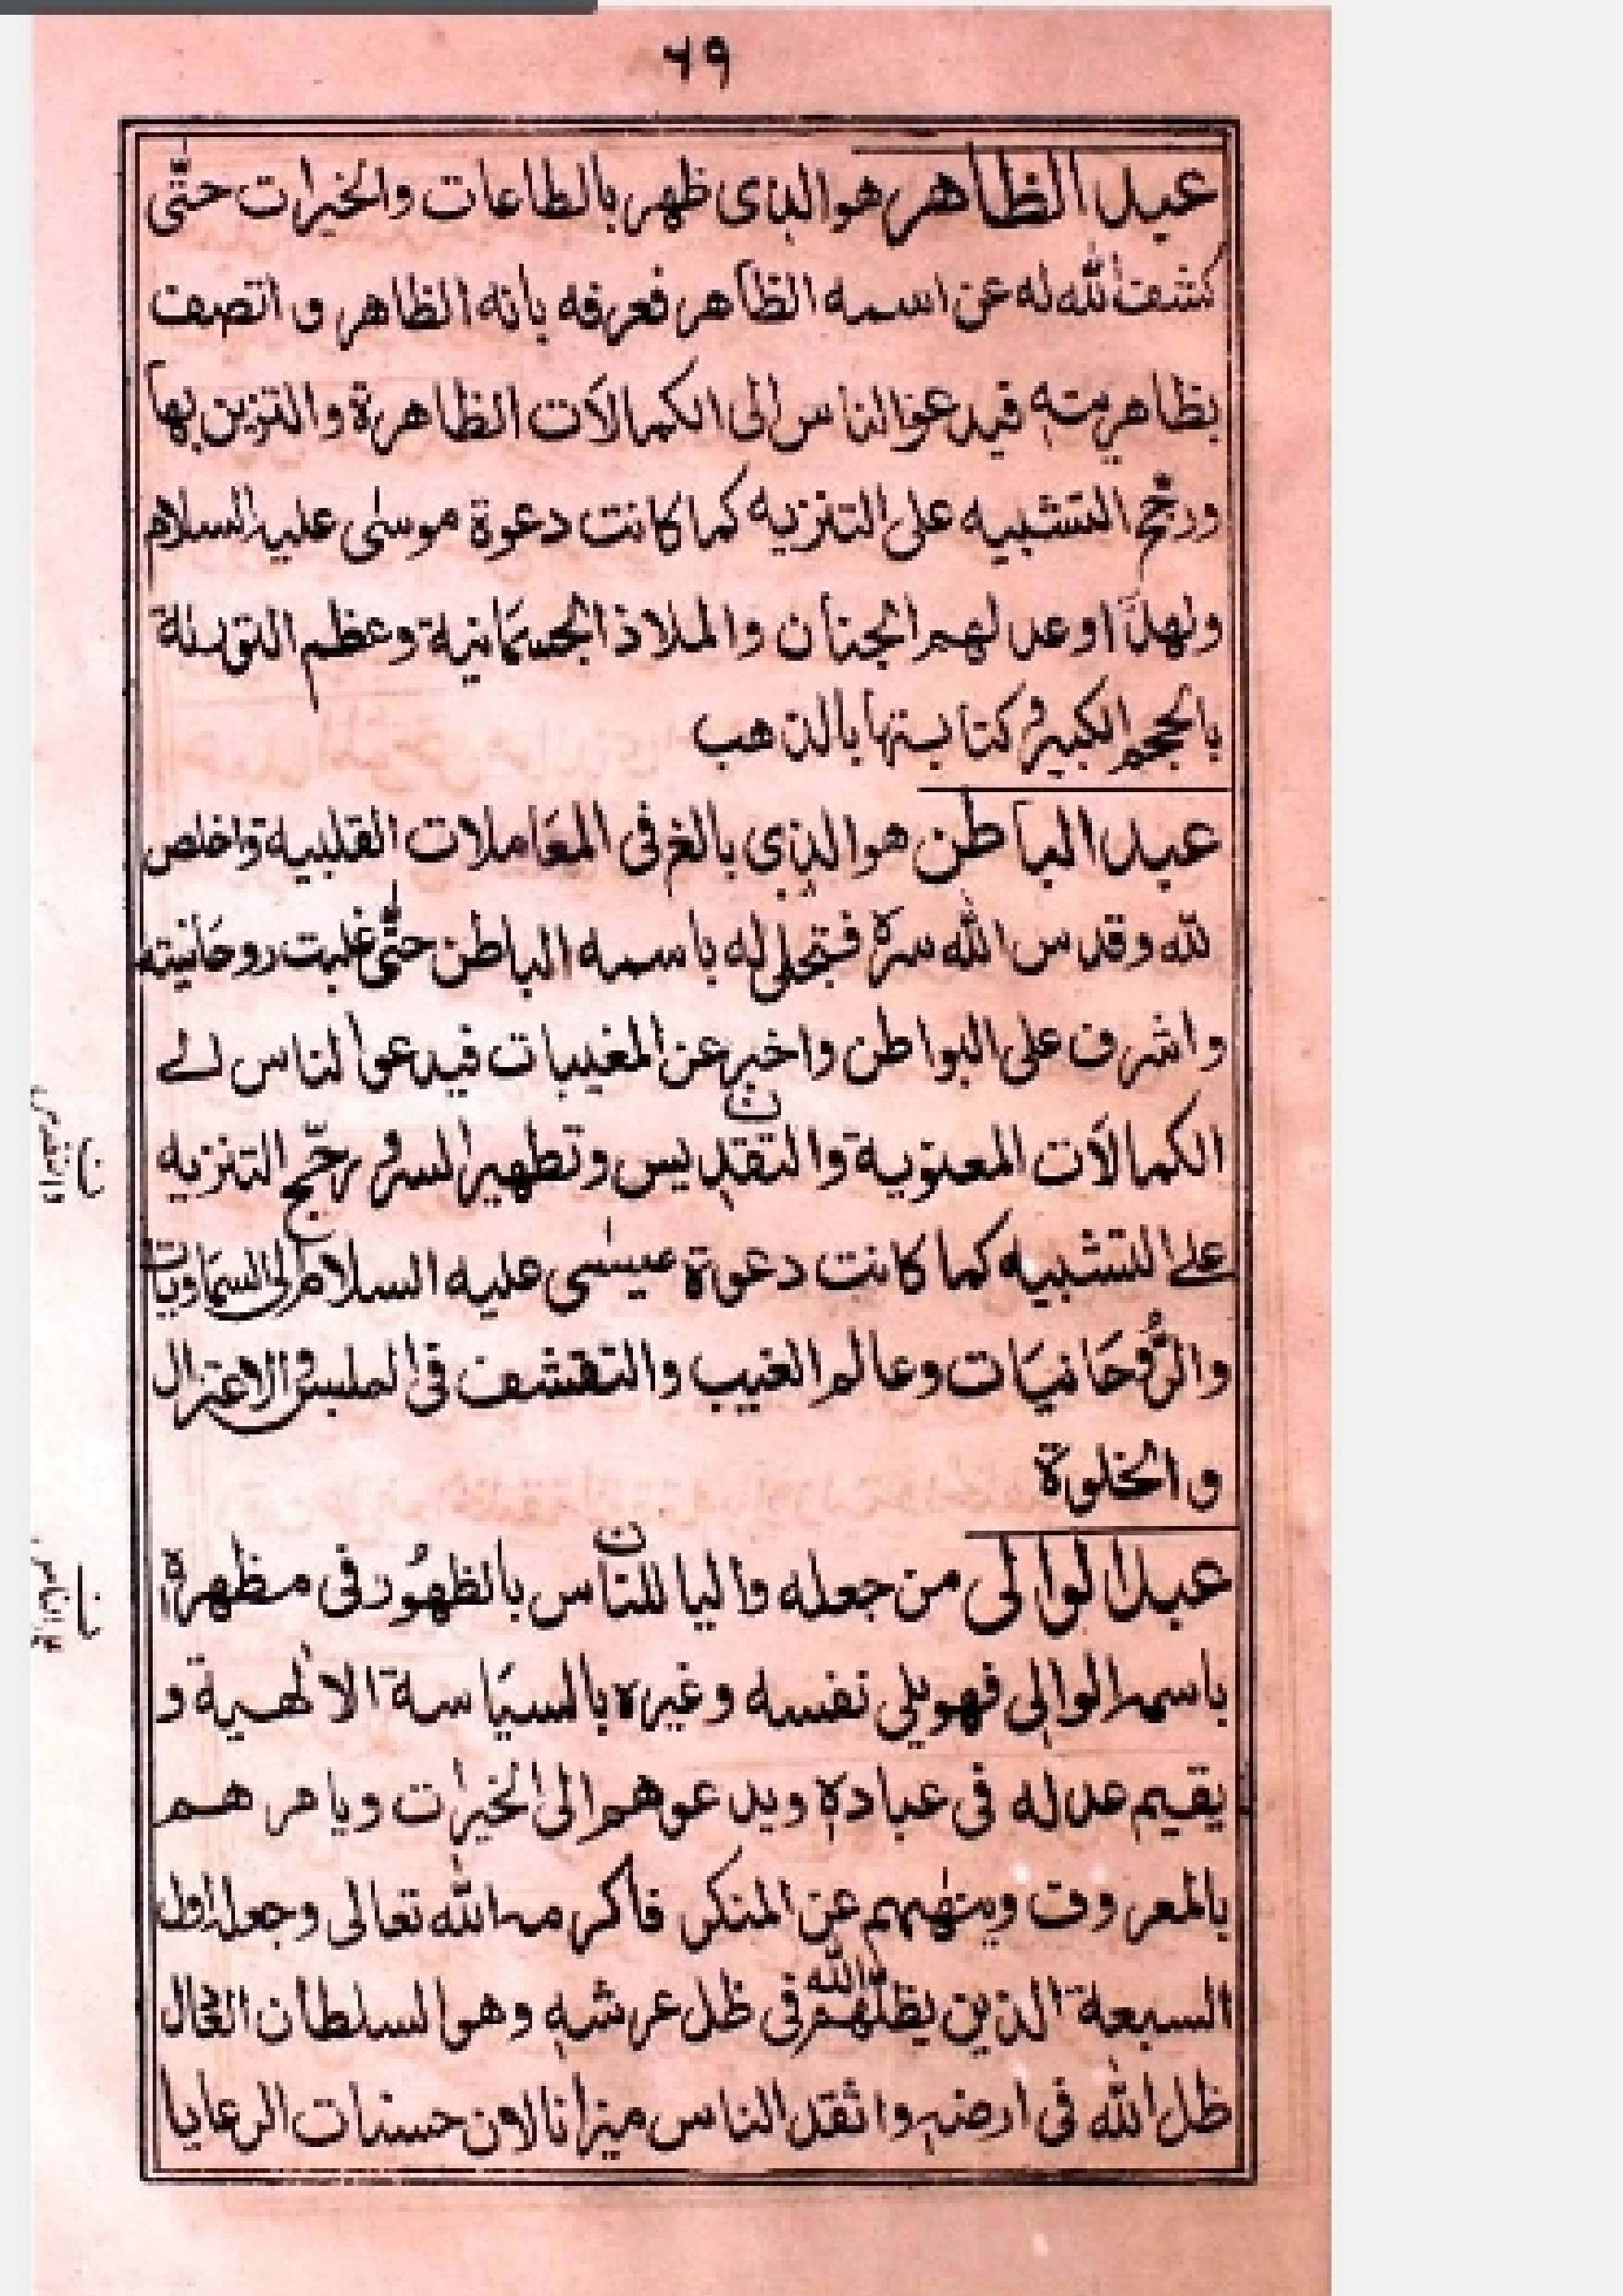 ٦٩
عبد الظاهر هو الذی ظهر بالطاعات والخیرات حتّٰی
کشف الله له عن اسمه الظاهر فعرفه بانه الظاهر و اتصف
بظاهریته فیدعوا الناس الی الکمالات الظاهرة والتزین بها
ورجّح التشبیه علی التنزیه کما کانت دعوة موسٰی علیه السلام
ولهذا اوعد لهم الجنان والملاذ الجسمانیة وعظم التورىٰة
بالحجم الکبیر وکتابتها بالذهب
عبد الباطن هو الذی بالغ فی المعَاملات القلبیة واخلص
لله وقدس الله سره فتجلی له باسمه الباطن حتّٰی غلبت روحَانیته
واشرف علی البواطن واخبر عن المغیبات فیدعوا الناس الے
الکمالَات المعنویة والتقدیس وتطهیر السر و رجّح التنزیه
علے التشبیه کما کانت دعوة عیسٰی علیه السلام الی السمَاویات
والرُّوحَانیَات وعالم الغیب والتقشف فی الملبس والاعتزال
و الخلوة
عبد الوالی من جعله والیا للناس بالظهُور فی مظهره
باسمه الوالی فهو یلی نفسه وغیره بالسیَاسة الالٰهیة و
یقیم عدله فی عباده ویدعوهم الی الخیرات ویامرهم
بالمعروف وینهٰیهم عن المنکر فاکرمه الله تعالی وجعله اول
السبعة الذین یظلهم الله فی ظل عرشه وهو السلطان العادل
ظل الله فی ارضه واثقل الناس میزانا لان حسنات الرعایا